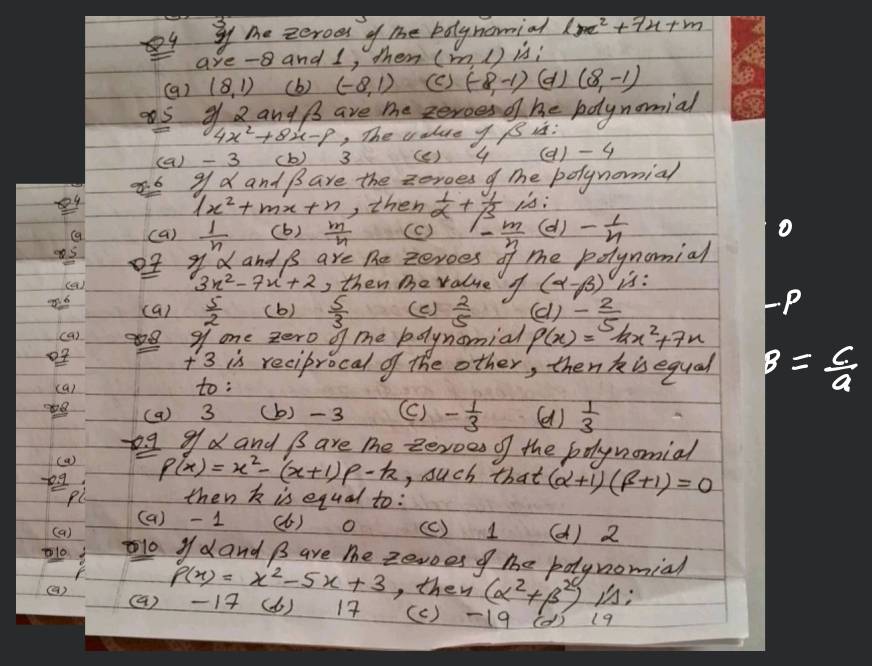 Q4 If the zeroes of the polynomial lx² + 7x + m
are -8 and 1, then (m, l) is:
(a) (8,1) (b) (-8,1) (c) (-8,-1) (d) (8,-1)
Q5 If 2 and β are the zeroes of the polynomial
4x² + 8x - p, the value of β is:
(a) - 3 (b) 3 (c) 4 (d) - 4
Q.6 If α and β are the zeroes of the polynomial
lx² + mx + n, then 1/α + 1/β is:
(a) 1/n (b) m/n (c) - m/n (d) - 1/n
Q7 If α and β are the zeroes of the polynomial
3x² - 7x + 2, then the value of (α-β) is:
(a) 5/2 (b) 5/3 (c) 2/5 (d) - 2/5
Q8 If one zero of the polynomial P(x) = kx² + 7x
+ 3 is reciprocal of the other, then k is equal
to:
(a) 3 (b) - 3 (c) - 1/3 (d) 1/3
Q.9 If α and β are the zeroes of the polynomial
P(x) = x² - (x+1)p - k, such that (α+1)(β+1) = 0
then k is equal to:
(a) - 1 (b) 0 (c) 1 (d) 2
Q10 If α and β are the zeroes of the polynomial
P(x) = x² - 5x + 3, then (α² + β²) is:
(a) -17 (b) 17 (c) -19 (d) 19
Q4
(a
Q5
(a)
Q.6
(a)
Q7
(a)
Q8
(a)
Q9
P(
(a)
Q10
(a)
0
-P
β = c/a